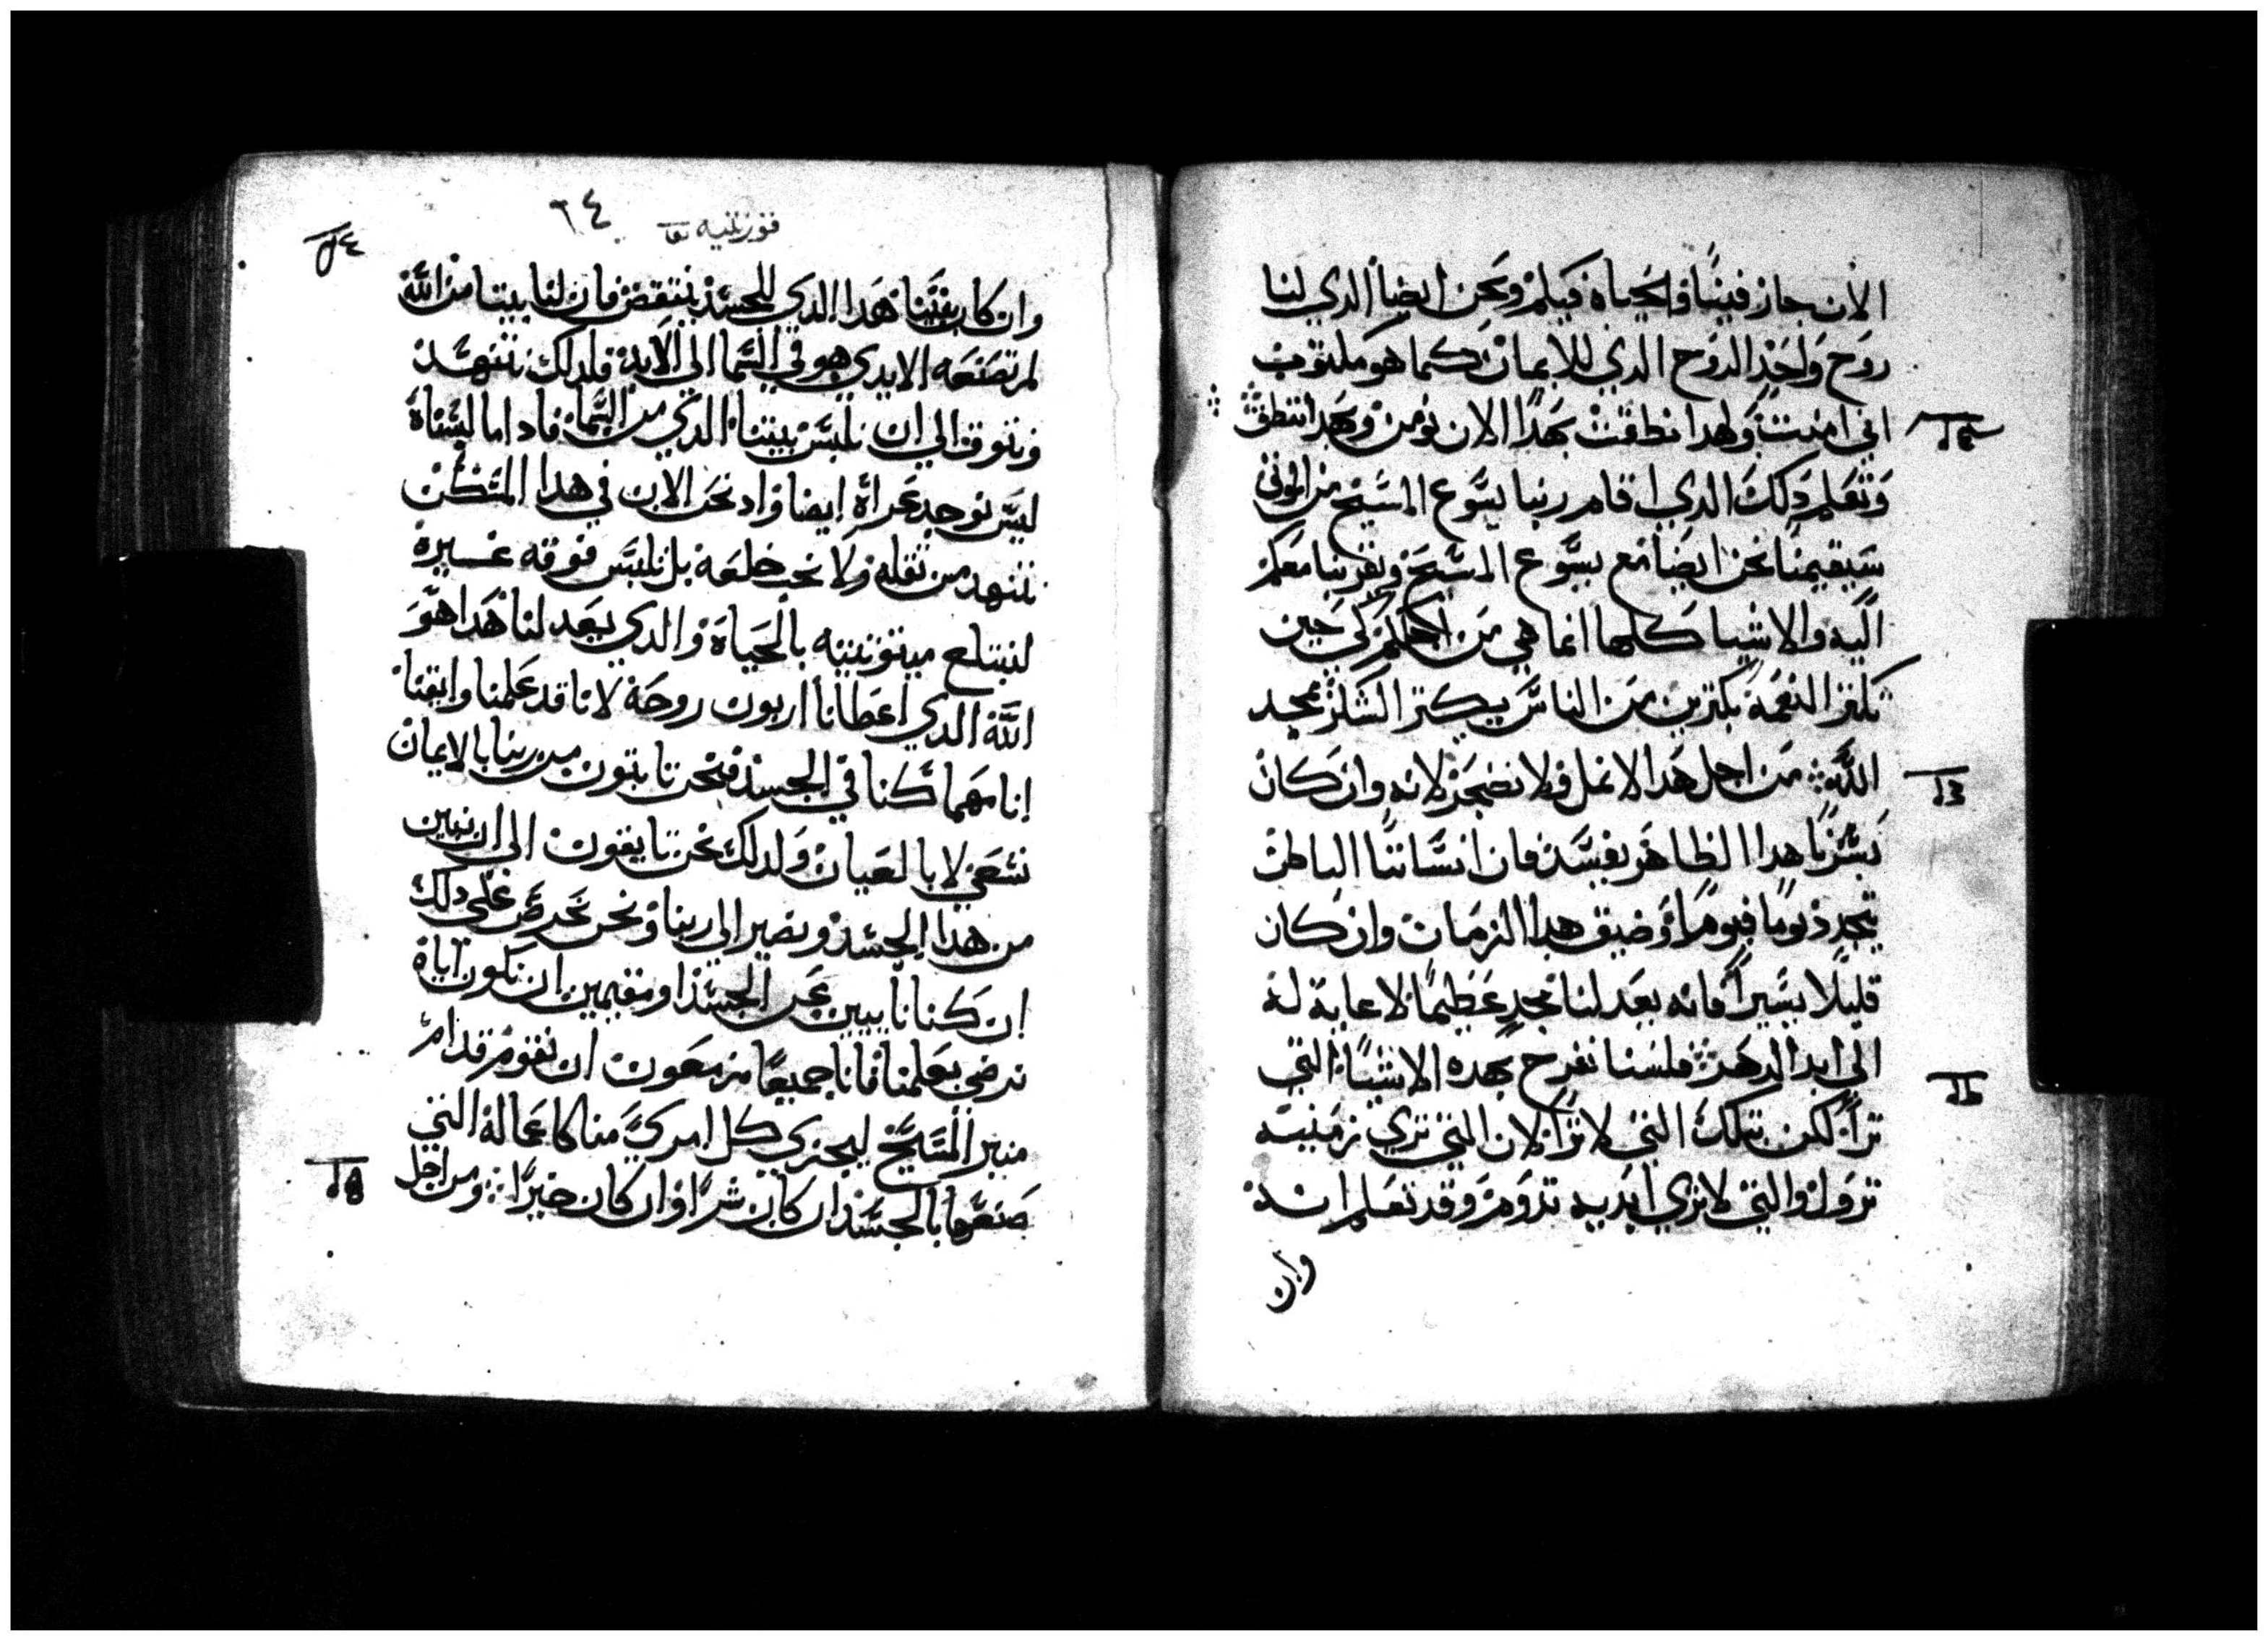 الان جاز فينا والحياه فيكم ونحن ايضا الذي لنا
روح واحد الروح الذي للايمان كما هو مكتوب
اني امنت ولهدا نطقت بهدا الان نومن وبهدا ننطق
ونعلم دلك الدي اقام ربنا يسوع المسيح من الموتي
سيقيمنا نحن ايضا مع يسوع المسيح ويقربنا معكم
اليه والاشيا كلها انما هي من اجلكم لكي حين
تكتر النعمة بكتيرين من الناس يكتر الشكر لمجد
الله من اجل هدا لا نمل ولا نضجر لانه وان كان
بشرنا هدا الظاهر يفسد فان انساننا الباطن
يتجدد يوما فيوما وضيق هدا الزمان وان كان
قليلا يسيرا فانه يعد لنا مجد عظيما لا غاية له
الي ابد الدهر فلسنا نفرح بهده الاشيا التي
ترا لكن بتلك التي لا ترا لان التي تري زمنيه
تزول والتي لا تري ابديه تدوم وقد نعلم انه
وان
٦٤
قورنتيه
وان كان بيتنا هدا الدي للجسد ينتقض فان لنا بيتا من الله
لم تصنعه الايدي هو في السما الي الابد فلدلك نتنهد
ونتوق الي ان نلبس بيتنا الدي من السما فادا ما لبسناه
ليس نوجد عراه ايضا واد نحن الان في هدا المسكن
نتنهد من تقله ولا نحب خلعه بل نلبس فوقه غيره
لتبتلع ميتوتيته بالحياة والدي يعد لنا هدا هو
الله الدي اعطانا اربون روحه لانا قد علمنا وايقنا
انا مهما كنا في الجسد فنحن نايتون من ربنا بالايمان
نسعي لا بالعيان ولدلك نحن تايقون الي ان نبين
من هدا الجسد ونصير الي ربنا ونحن نحرص علي دلك
ان كنا نايبين عن الجسد او مقيمين ان نكون اياه
نرضي بعلمنا فانا جميعا مزمعون ان نقوم قدام
منبر المسيح ليجزي كل امري منا كاعماله التي
صنعها بالجسد ان كان شرا وان كان خيرا ومن اجل